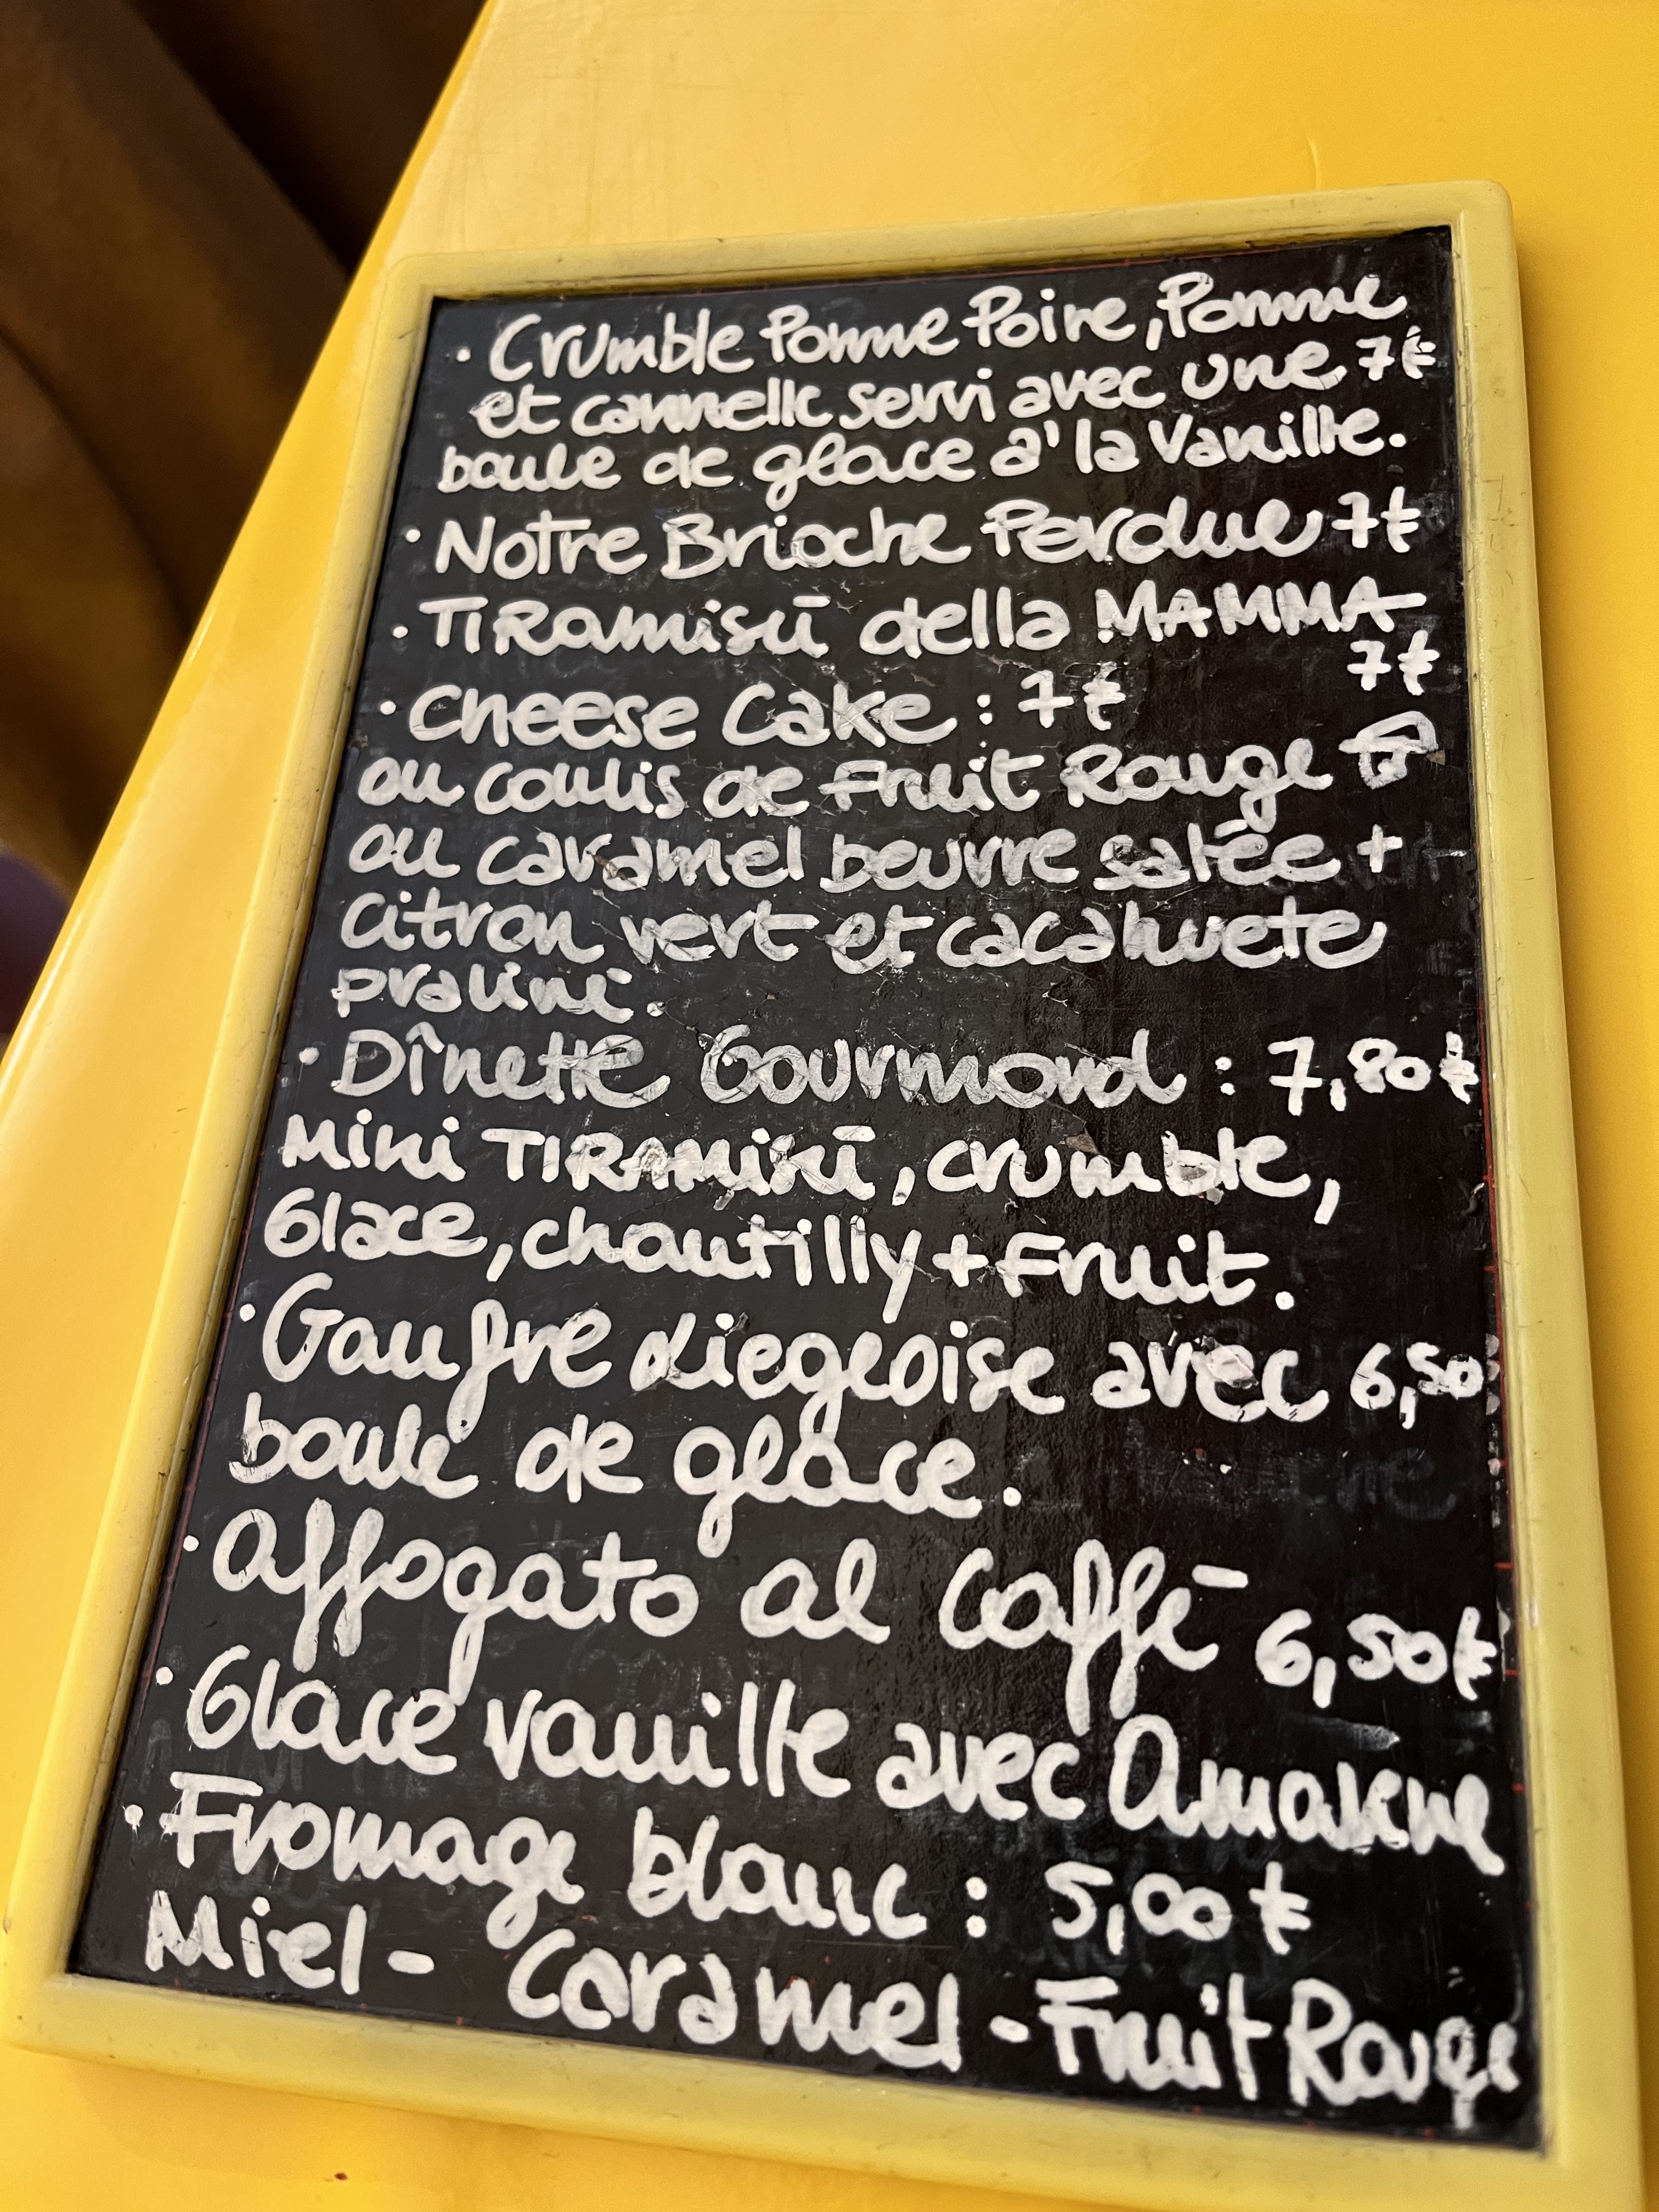 · Crumble Pomme Poire, Pomme
et cannelle servi avec une 7€
boule de glace à la Vanille.
· Notre Brioche Perdue 7€
· TIRamisū della MAMMA
7€
· Cheese Cake : 7€
au coulis de Fruit Rouge
ou caramel beurre salée +
Citron vert et cacahuete
praliné.
· Dînette Gourmand : 7,80€
Mini TIRAMisū, crumble,
Glace, chantilly + Fruit.
· Gaufre Liegeoise avec 6,50
boule de glace.
· Affogato al Caffē
6,50€
· Glace vanille avec Amarene
· Fromage blanc : 5,00€
Miel - Caramel - Fruit Rouge